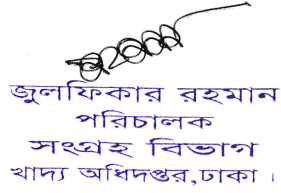 জুলফিকার রহমান
পরিচালক
সংগ্রহ বিভাগ
খাদ্য অধিদপ্তর,ঢাকা ।